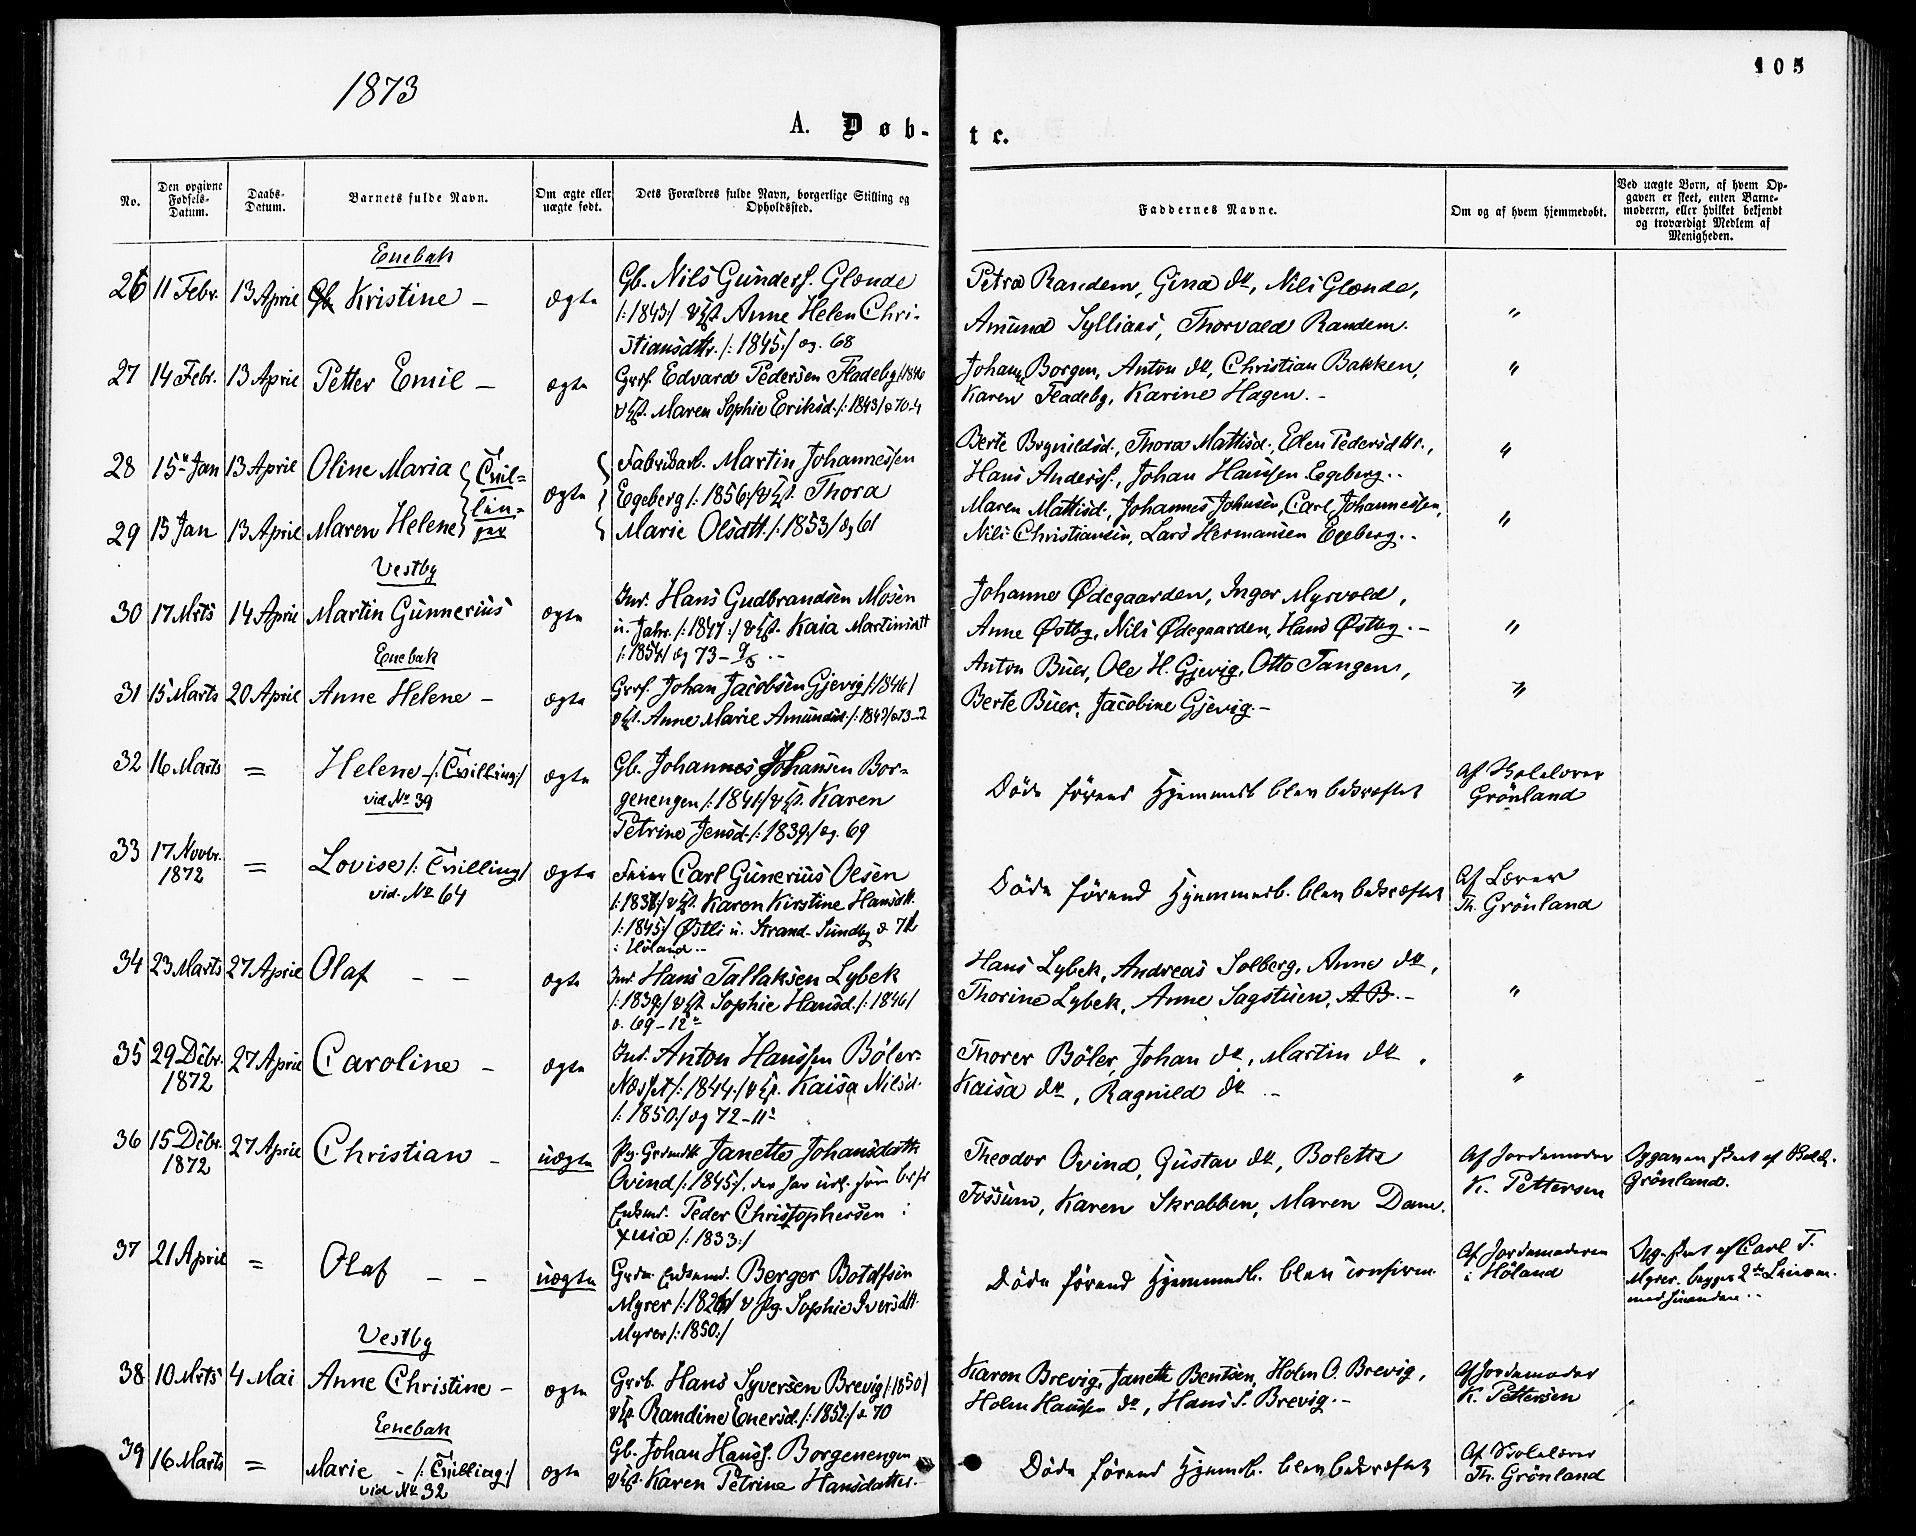 1873
105
A. Døb-
te.
No.
Den opgivne Fødsels-Datum.
Daabs-Datum.
Barnets fulde Navn.
Om ægte eller uægte født.
Dets Forældres fulde Navn, borgerlige Stilling og Opholdssted.
Faddernes Navne.
Om og af hvem hjemmedøbt.
Ved uægte Børn, af hvem Op-
gaven er skeet, enten Barne-
moderen, eller hvilket bekjendt
og troværdigt Medlem af
Menigheden.
Enebak
26 11 Febr. 13 April Kristine – ægte
Gb. Nils Gunders. Glende
/: 1843 :/ & Anne Helen Chri-
stiansdttr. /: 1845 :/ æg. 68
Petra Randem, Gina do, Nils Glende,
Amund Sylliaas, Thorvald Randem.
"
27 14 Febr. 13 April Petter Emil – ægte
Edvard Pedersen Fladeby
Maren Sophie Eriksd. /: 1843 /
Johann Borgen, Anton do, Christian Bakken,
Karen Fladeby, Karine Hagen. –
"
28 15 Jan 13 April Oline Maria
Tvil-
lin-
ger
29 15 Jan 13 April Maren Helene
ægte
Fabrikarb. Martin Johannessen
Egeberg /: 1856 :/ & Thora
Marie Olsdtt. /: 1853 / æg 61
Berte Brynildsd., Thora Mattisd., Elen Pedersdttr.,
Hans Anderss., Johan Hansen Egeberg..
"
Maren Mattisd., Johannes Johnsen, Carl Johannessen,
Nils Christiansen, Lars Hermansen Egeberg..
"
Vestby
30 17 Mrts 14 April Martin Gunnerius ægte
Hans Gudbrandsen Mosen
/: 1847 :/ & Kaia
/: 1854 / æg 73
Johanne Ødegaarden, Inger Myrvold,
Anne Østby, Nils Ødegaarden, Hans Østby. –
"
Enebak
31 15 Marts 20 April Anne Helene – ægte
Johan Jacobsen Gjevig /: 1846 /
Anne Marie Amundsd.
Anton Buer, Ole H. Gjevig, Otto Tangen,
Berte Buer, Jacobine Gjevig. –
"
32 16 Marts = Helene – /: Tvilling :/
vid. No 39
ægte
Gb. Johannes Johansen Bor-
genengen /: 1841 / & Karen
Petrine Jensd. /: 1839 :/ æg. 69
Døde førend Hjemmed. blev bekræftet
Af Skolelærer
Grönland
33 17 Novbr. 1872 = Lovise /: Tvilling /
vid. No 64
ægte
Carl Gunerius Olsen
Karen Kirstine Hansdtt.
/: 1845 :/ Østli u. Strand-Sundby
i Høland –
Døde førend Hjemmed. blev bekræftet
Af Lærer
Th. Grönland
34 23 Marts 27 April Olaf – – ægte
Hans Tallaksen Lybek
/: 1839 / & Sophie Hansd. /: 1846 /
69 – 12
Hans Lybek, Andreas Solberg, Anne do,
Thorine Lybek, Anne Sagstuen, A. B. –
"
35 29 Dcbr. 1872 27 April Caroline – ægte
Anton Hanssen Bøler-
Næsset /: 1844 :/ & Kaisa Nilsd.
/: 1850 :/ æg 72 – 11
Thorer Böler, Johan do, Martin do,
Kaisa do, Ragnild do –
"
36 15 Dcbr. 1872 27 April Christian – uægte
Janette Johansdatter
Ovind /: 1845 :/
Peder Christophersen i
Xnia /: 1833 :/
Theodor Ovind, Gustav do, Bolette
Fossum, Karen Skrabben, Maren Dam.
Af Jordemoder
K. Pettersen
Opgaven skeet af
Grönland.
37 21 April = Olaf – – uægte
Berger Botolfsen
Myrer & Pg. Sophie Iversdtt.
Myrer /: 1850 :/
Døde førend Hjemmed. blev confirm.
Af Jordemoderen
i Høland
Opg. skeet af Carl T.
Myrer. begges 2det Leierm.
med hinanden. –
Vestby
38 10 Mrts 4 Mai Anne Christine – ægte
Hans Syversen Brevig /: 1850 /
Randine Enersd. /: 1852 :/ æ 70
Karen Brevig, Janette Bentsen, Holm O. Brevig,
Holm Hanssen do, Hans S. Brevig. –
Af Jordemoder
K. Pettersen
Enebak
39 16 Marts = Marie – /: Tvilling :/
vid No 32
ægte
Gb. Johan Hanss. Borgenengen
Karen Petrine Hansdatter.
Døde førend Hjemmed. blev bekræftet
Af Skolelærer
Th. Grönland